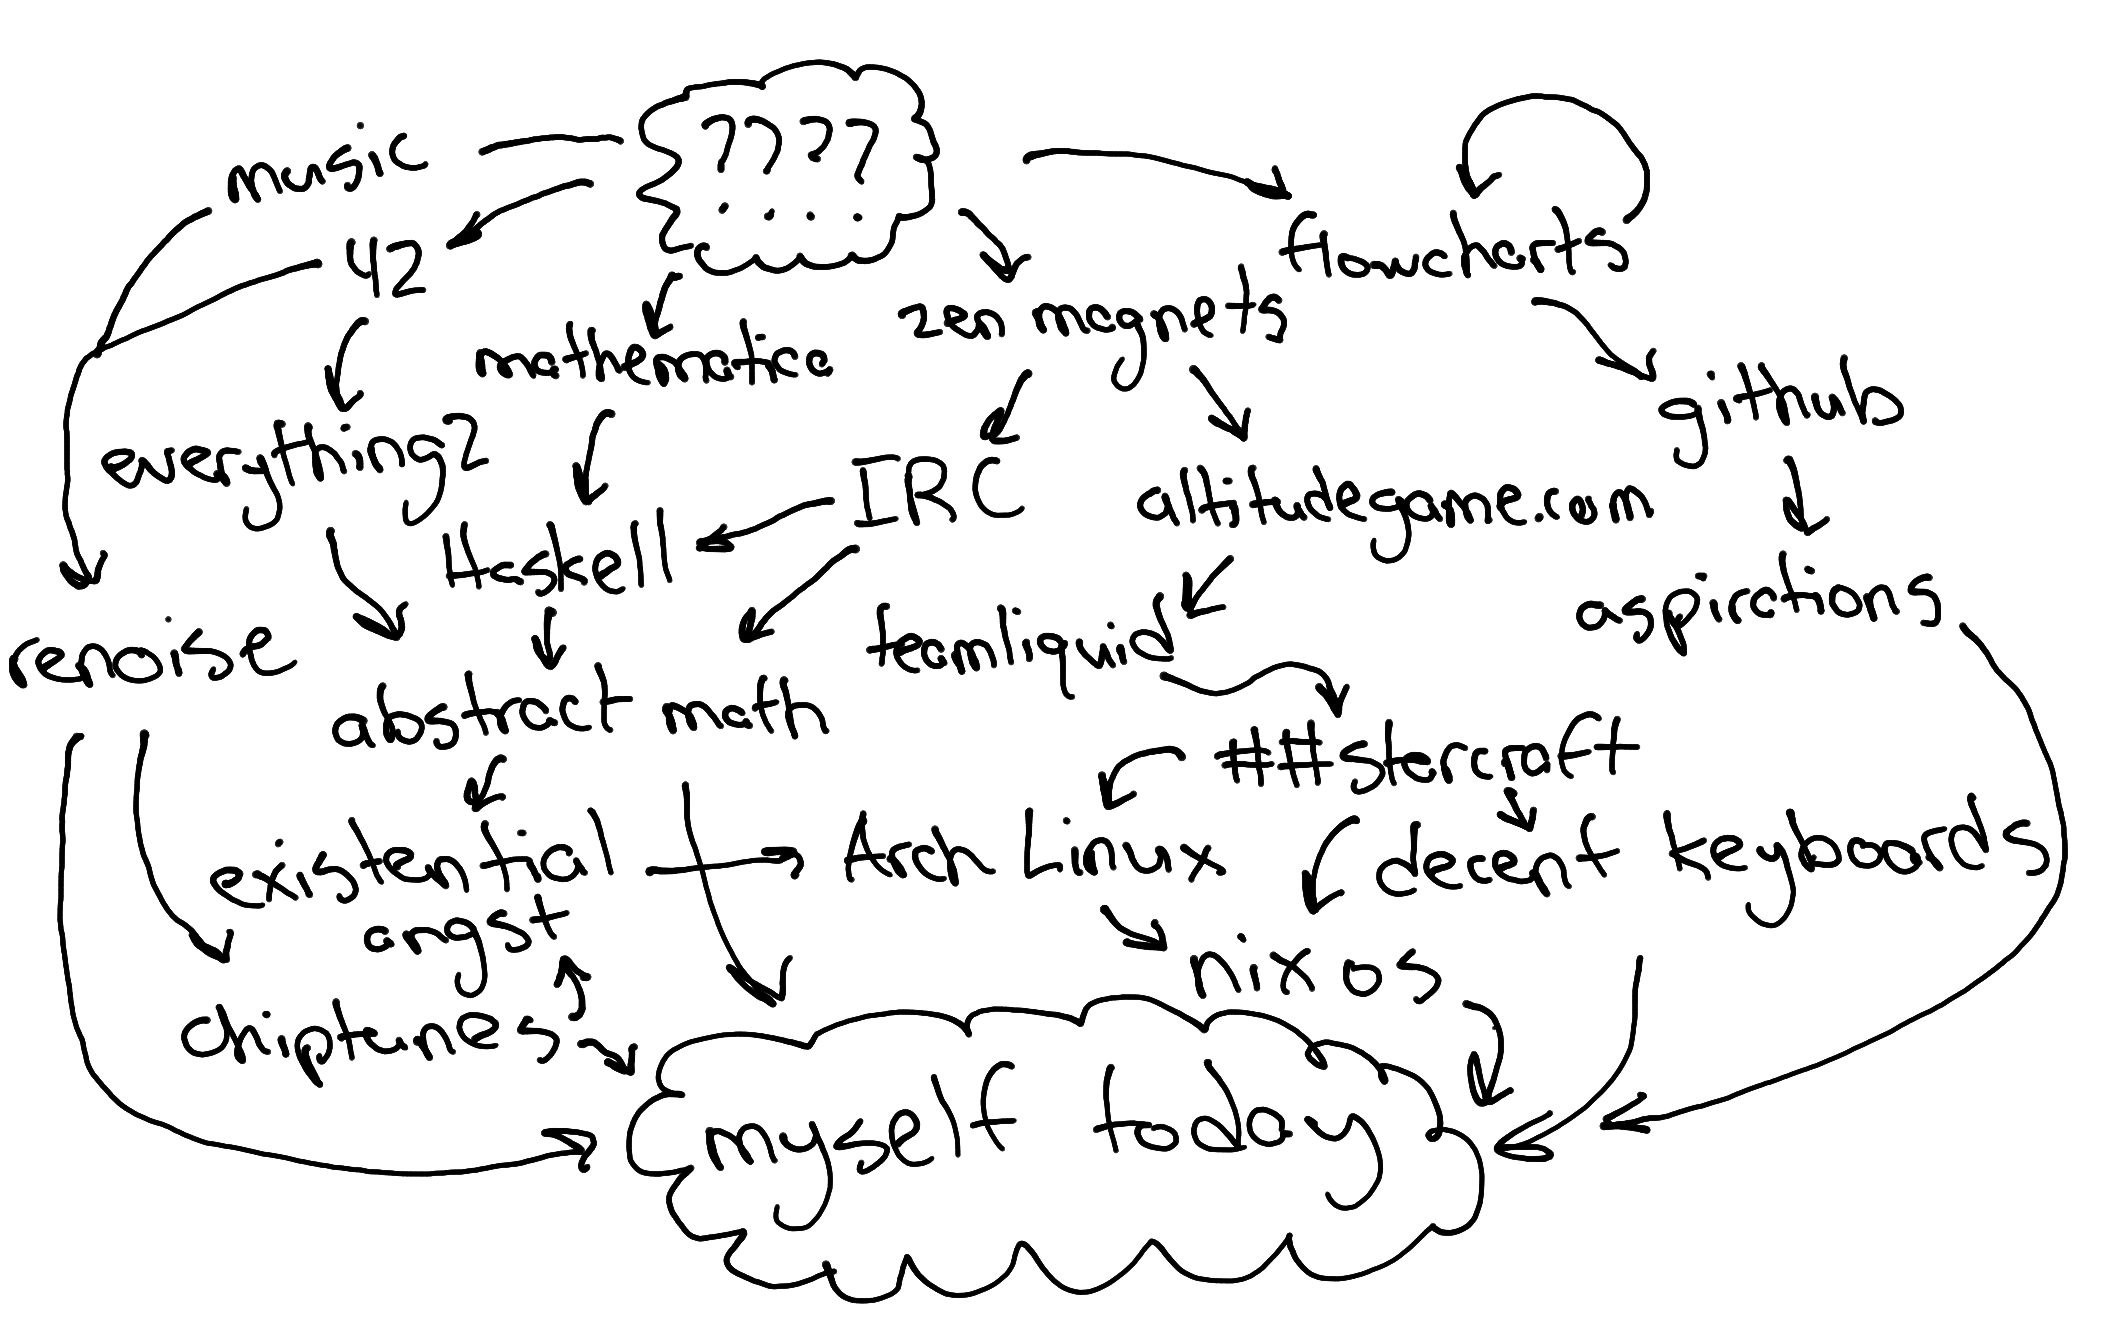 ????
music
42
flowcharts
mathematica
zen magnets
github
everything2
IRC
altitudegame.com
Haskell
aspirations
renoise
teamliquid
abstract math
##starcraft
existential
angst
Arch Linux
decent keyboards
nix os
chiptunes
myself today